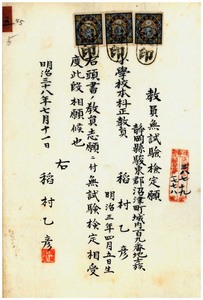 教員無試験検定願
静岡縣駿東郡沼津町城内百九番地士族
小學校本科正教員
稲村乙彦
明治三年四月五日生
右頭書ノ教員志願ニ付無試験検定相受
度此段相願候也
右
明治三十八年七月十一日
稲村乙彦
印
印
印